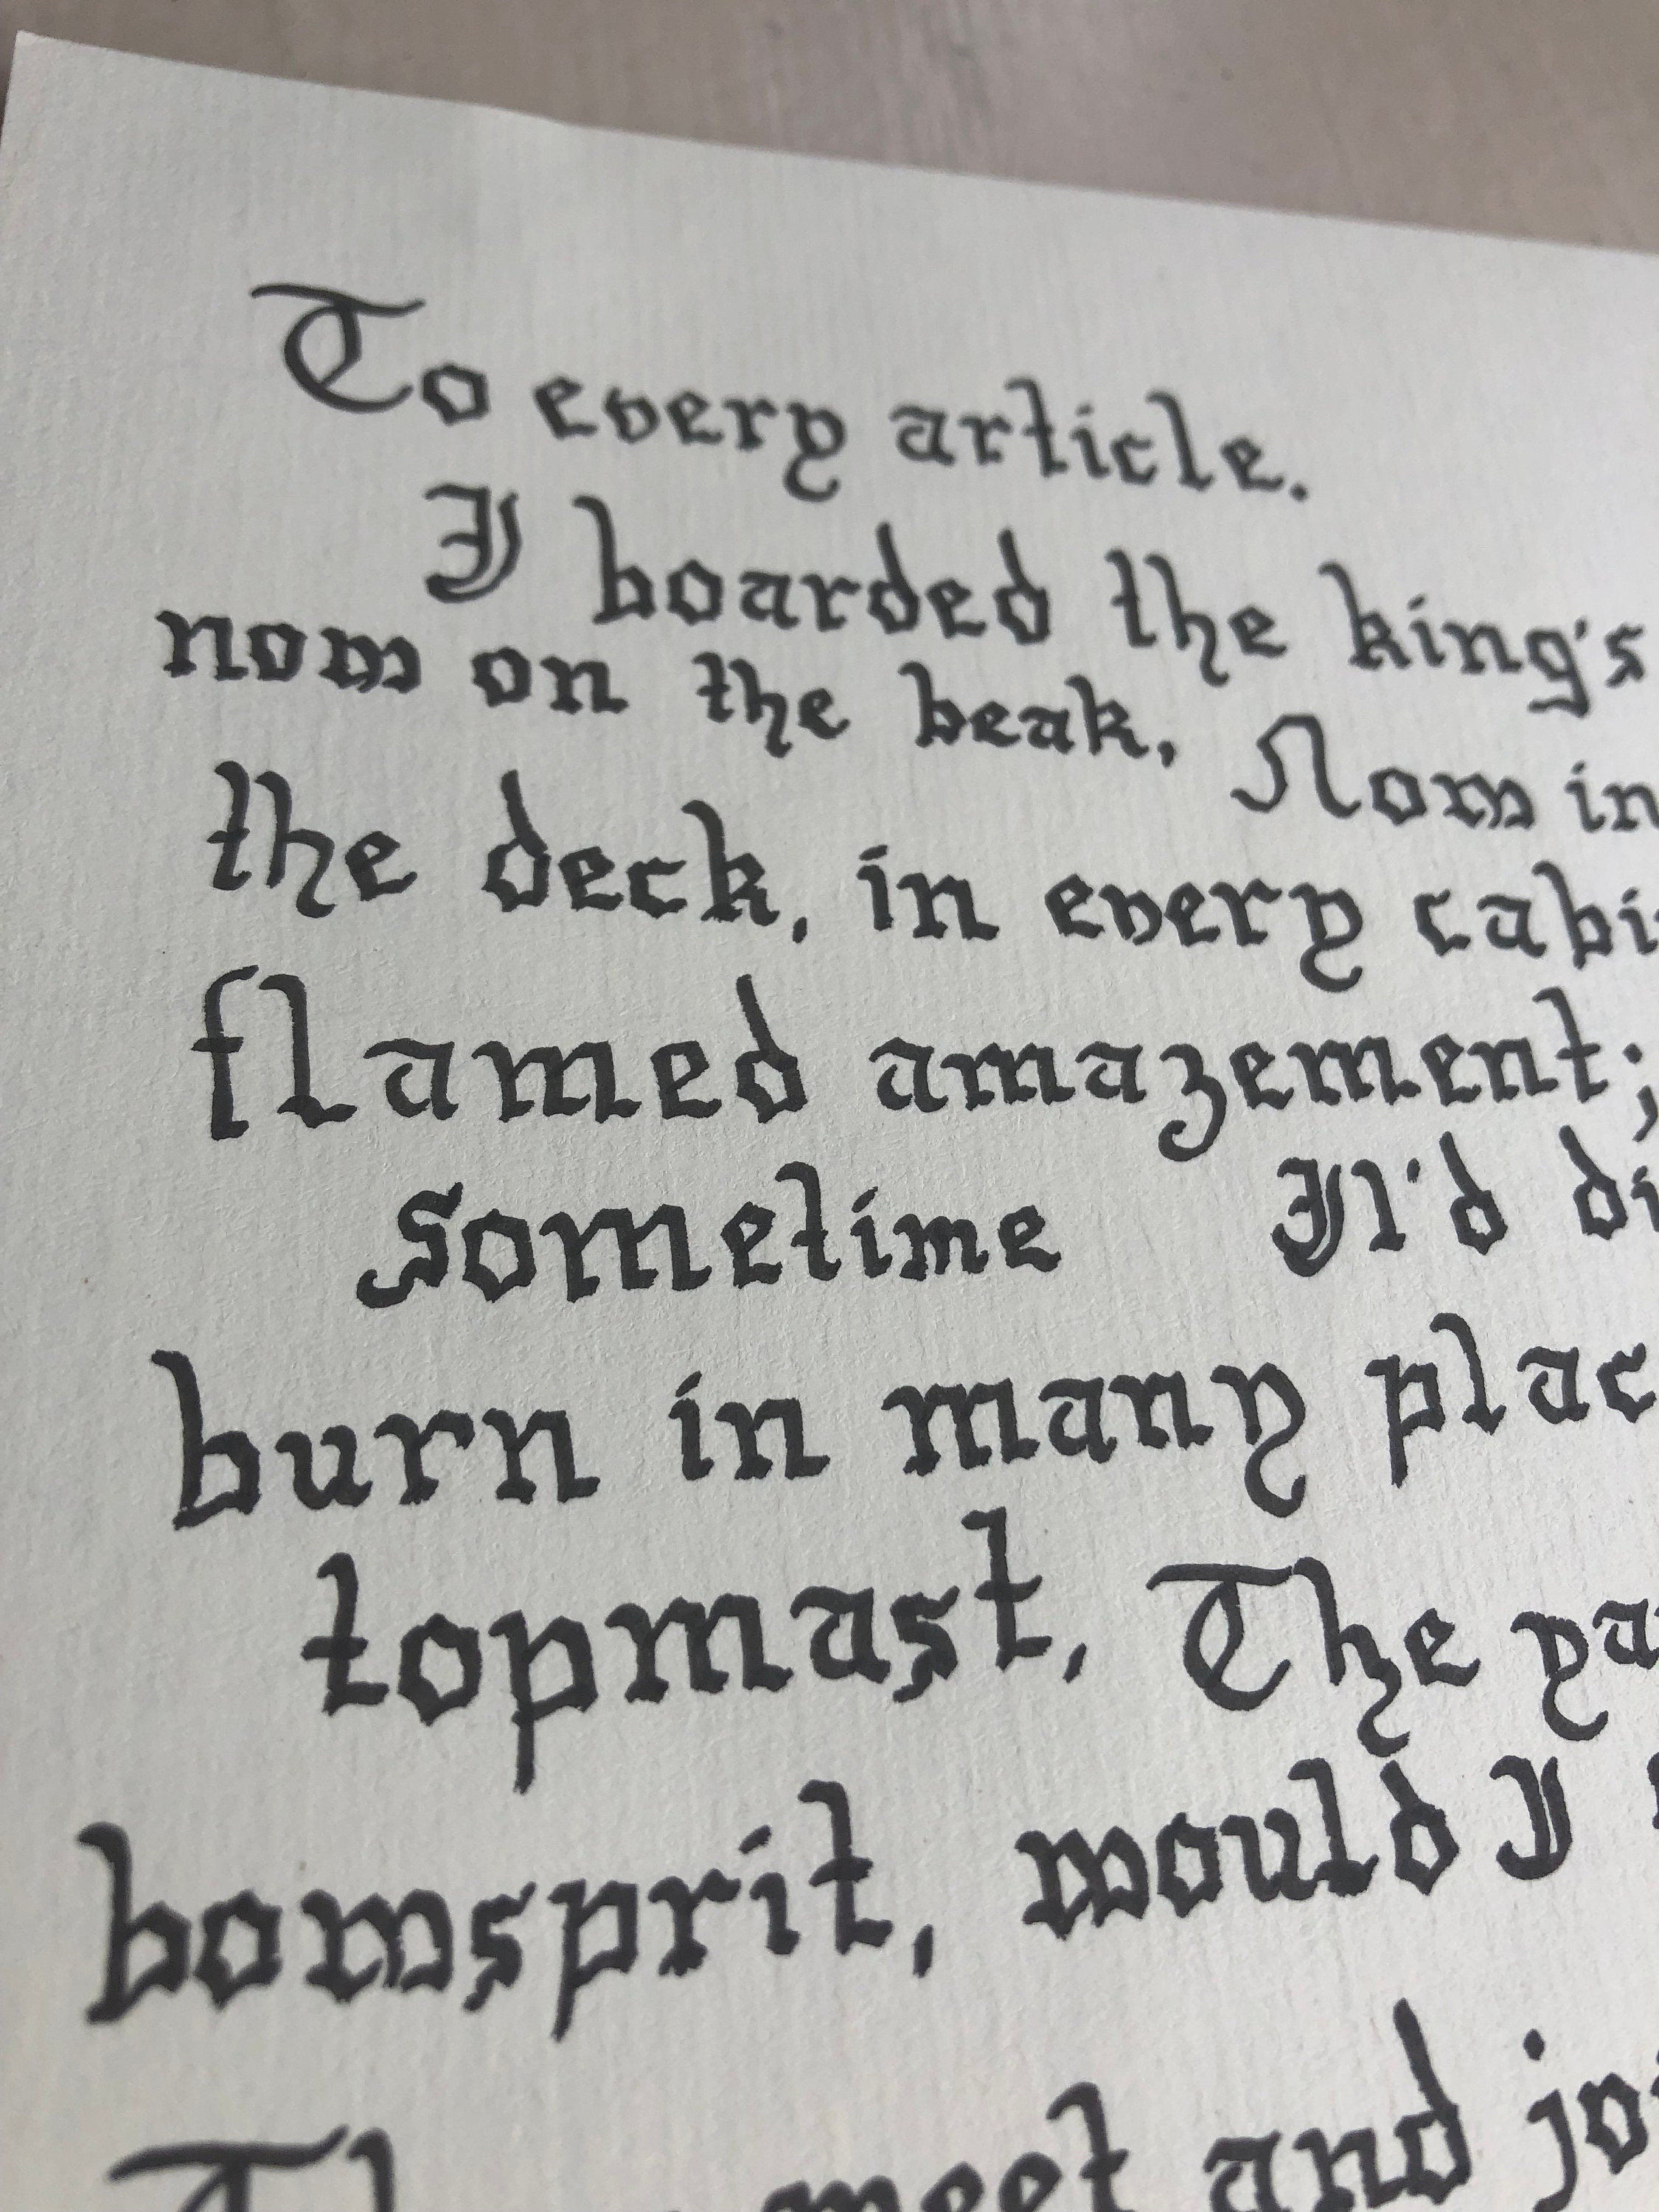 To every article.
I boarded the king's
now on the beak, Now in
the deck, in every cabi
flamed amazement;
sometime I'ld di
burn in many plac
topmast, The ya
bowsprit, would I
meet and joi